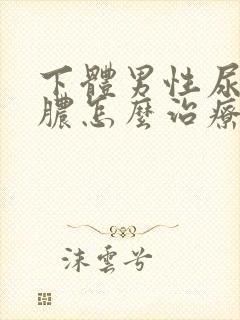 下體男性尿
膿怎麼治療
沫雲兮